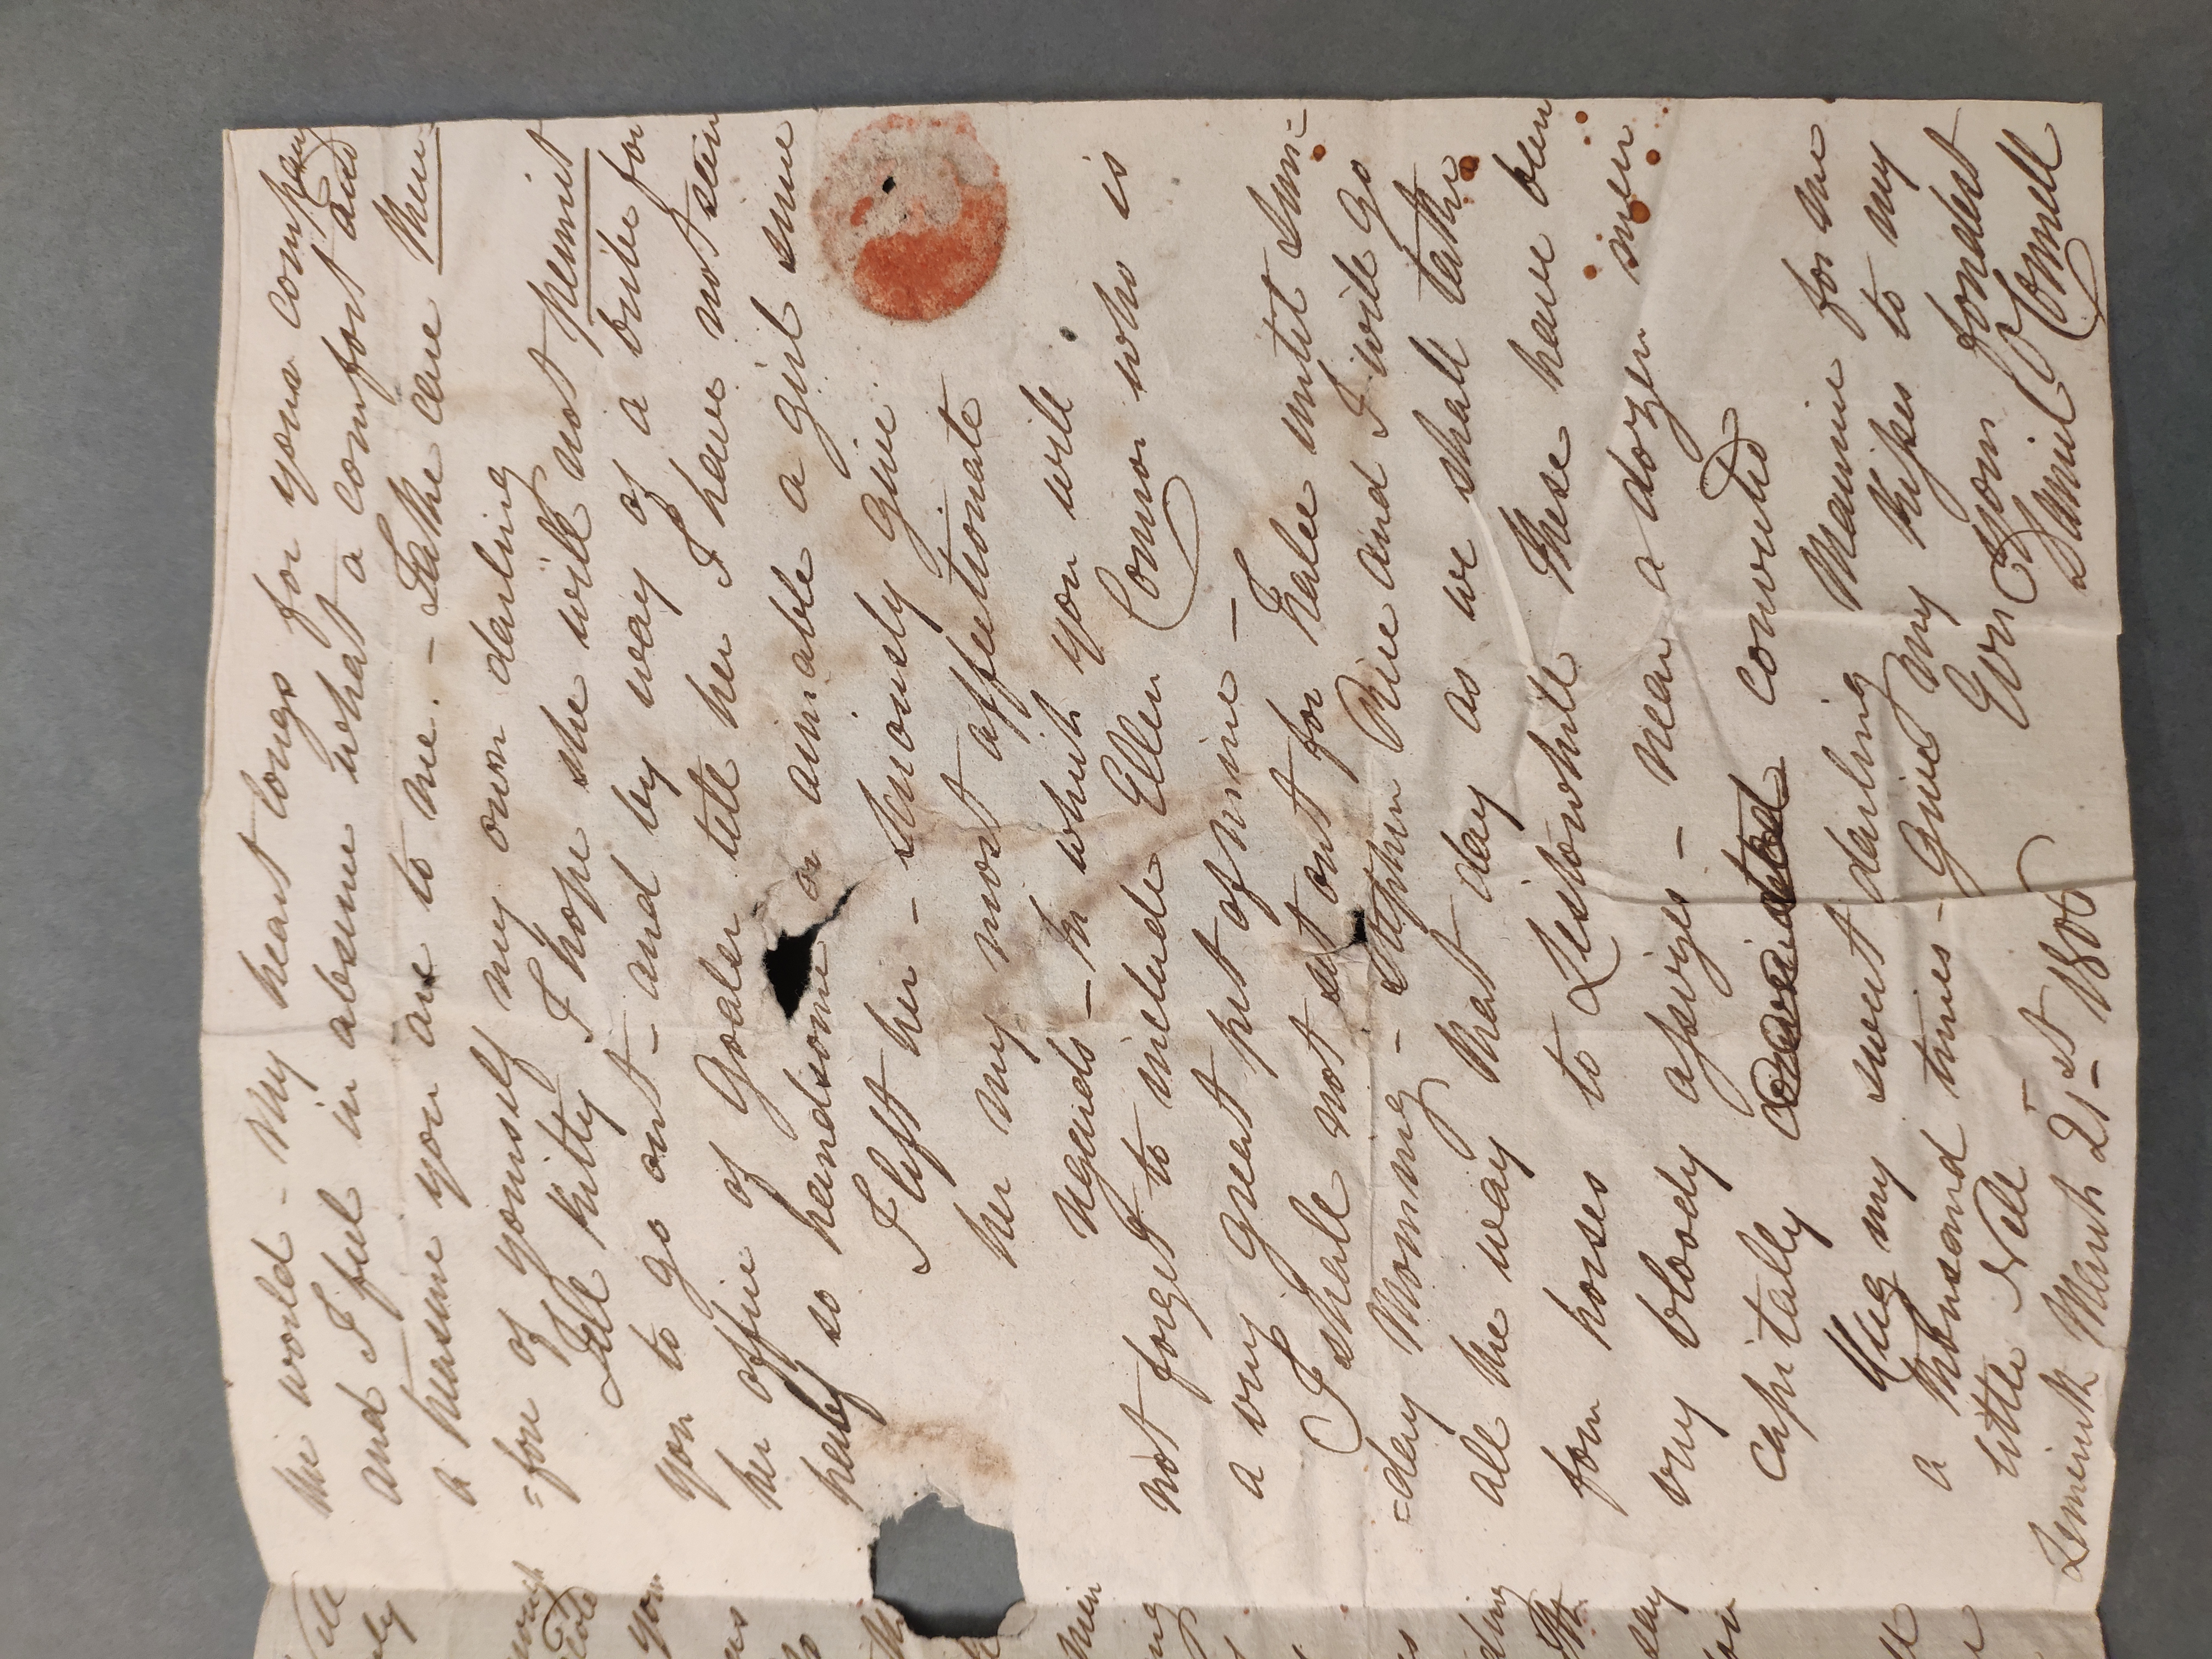 the world - My heart longs for your company
and I feel in absence what a comfort and
a treasure you are to me. - Take care then
=fore of yourself my own darling
Tell Kitty I hope she will not permit
you to go out - and by way of a bribe for
her office of Goaler tell her I have not seen
half so handsome or amiable a girl since
I left her - Seriously give
her my most affectionate
regards - In which you will
not forget to include Ellen Connor who is
a very great pet of mine -
I shall not set out for Tralee until Sun=
=day Morning - Stephen Rice and I will go
all the way that day as we shall take
four horses to Listowhill These have been
very bloody assizes - near a dozen men
capitally convicted convicted
Hug my sweet darling Maurice for me
a thousand times - Give my kisses to my
little Nell Your fondest
Limerick March 21st 1806 Daniel O Connell